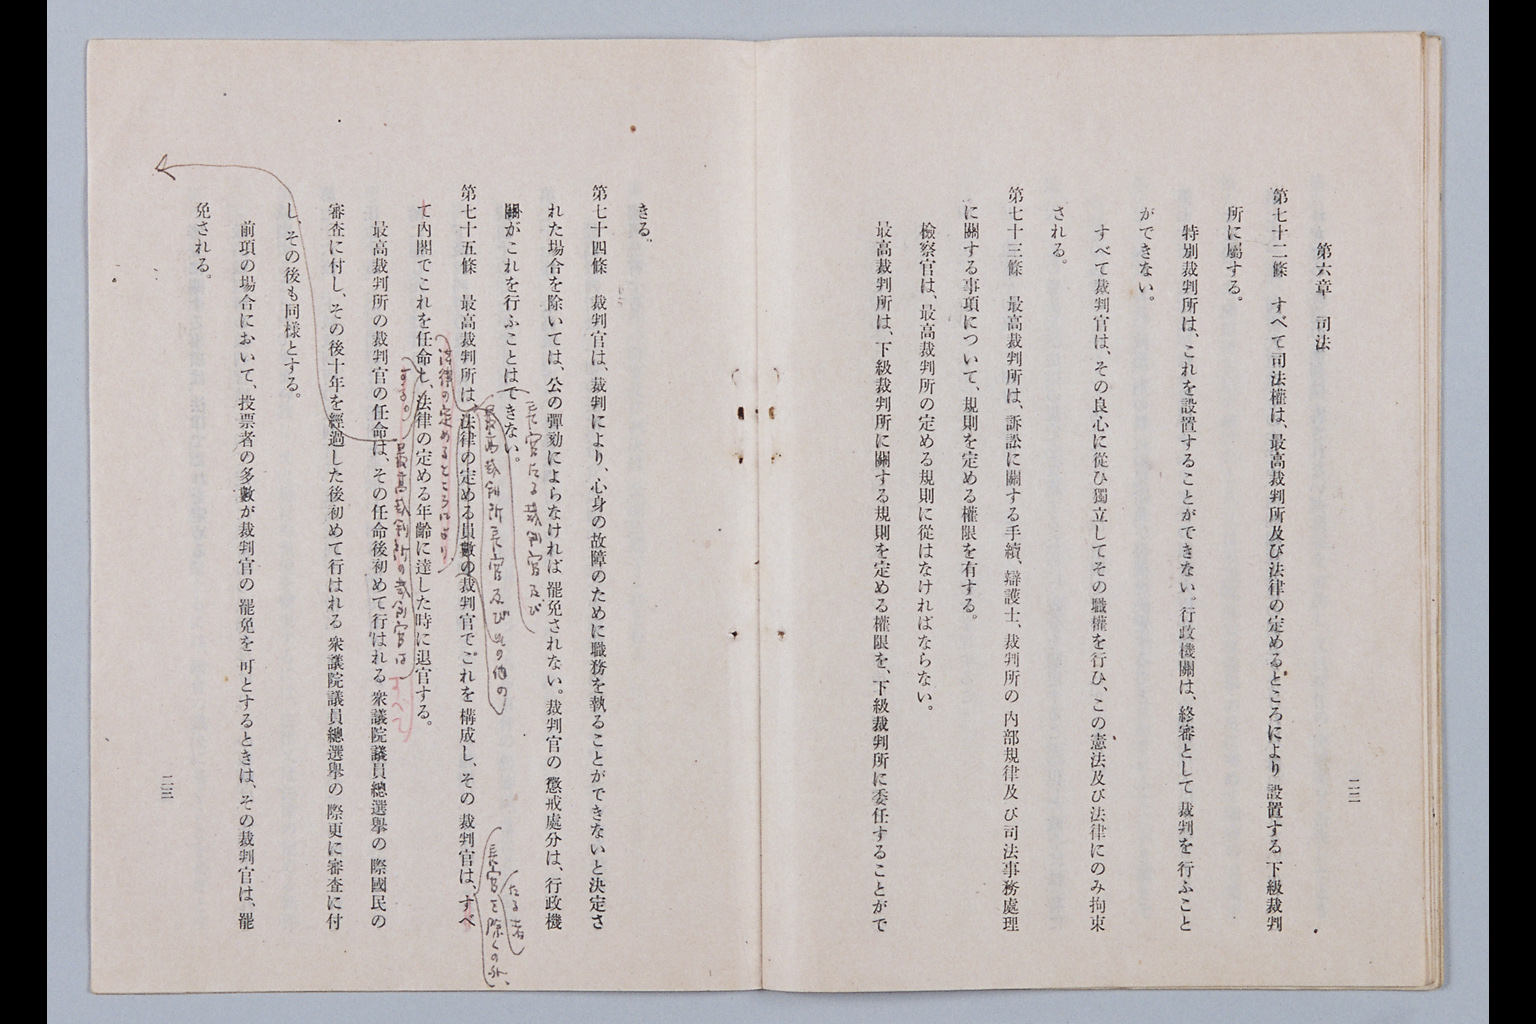 第六章　司法
第七十二條　すべて司法權は、最高裁判所及び法律の定めるところにより設置する下級裁判
所に屬する。
特別裁判所は、これを設置することができない。行政機關は、終審として裁判を行ふこと
ができない。
すべて裁判官は、その良心に從ひ獨立してその職權を行ひ、この憲法及び法律にのみ拘束
される。
第七十三條　最高裁判所は、訴訟に關する手續、辯護士、裁判所の内部規律及び司法事務處理
に關する事項について、規則を定める權限を有する。
檢察官は、最高裁判所の定める規則に從はなければならない。
最高裁判所は、下級裁判所に關する規則を定める權限を、下級裁判所に委任することがで
二二
きる。
第七十四條　裁判官は、裁判により、心身の故障のために職務を執ることができないと決定さ
れた場合を除いては、公の彈劾によらなければ罷免されない。裁判官の懲戒處分は、行政機
關がこれを行ふことはできない。
長官たる裁判官及び
最高裁判所長官及びその他の
第七十五條　最高裁判所は、法律の定める員數の裁判官でこれを構成し、その裁判官は、すべ
たる者
長官を除くの外、
法律の定めるところにより
て内閣でこれを任命し、法律の定める年齢に達した時に退官する。
する。
最高裁判所の裁判官は
すべて
最高裁判所の裁判官の任命は、その任命後初めて行はれる衆議院議員總選擧の際國民の
審査に付し、その後十年を經過した後初めて行はれる衆議院議員總選擧の際更に審査に付
し、その後も同樣とする。
前項の場合において、投票者の多數が裁判官の罷免を可とするときは、その裁判官は、罷
免される。
二三